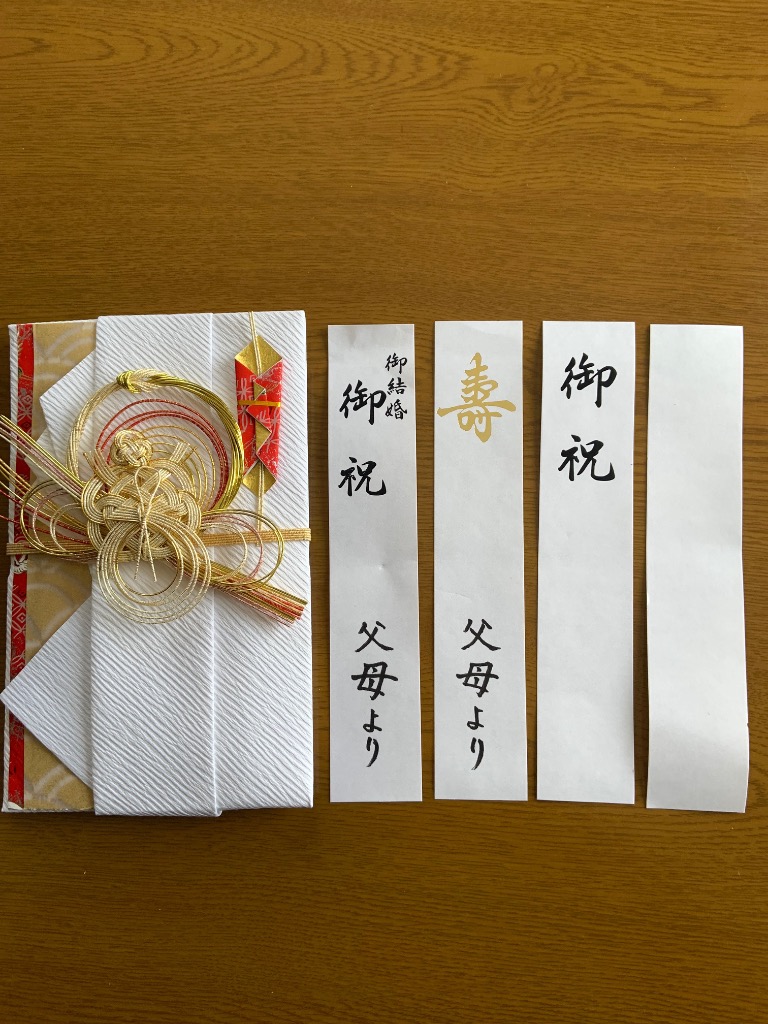 御結婚
御祝
父母より
寿
父母より
御祝